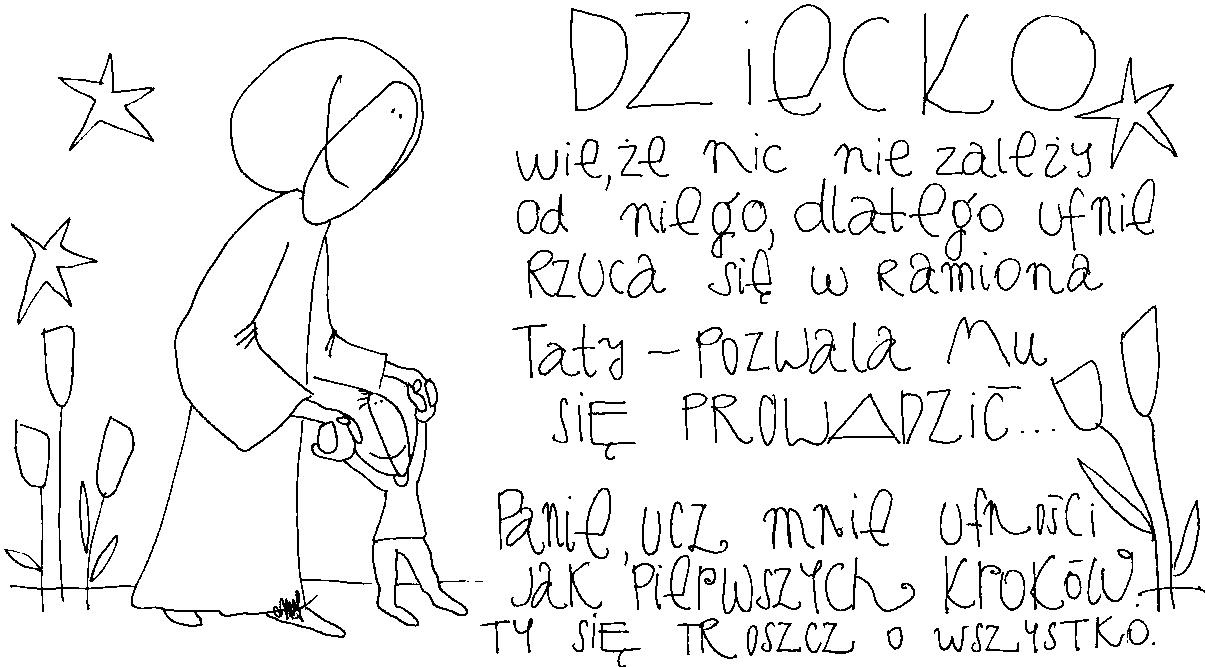 DZIECKO
wie, że nic nie zależy
od niego, dlatego ufnie
Rzuca się w Ramiona
Taty - pozwala Mu
SIĘ PROWADZIĆ...
Panie, ucz mnie ufności
jak pierwszych kroków.
TY SIĘ TROSZCZ O WSZYSTKO.